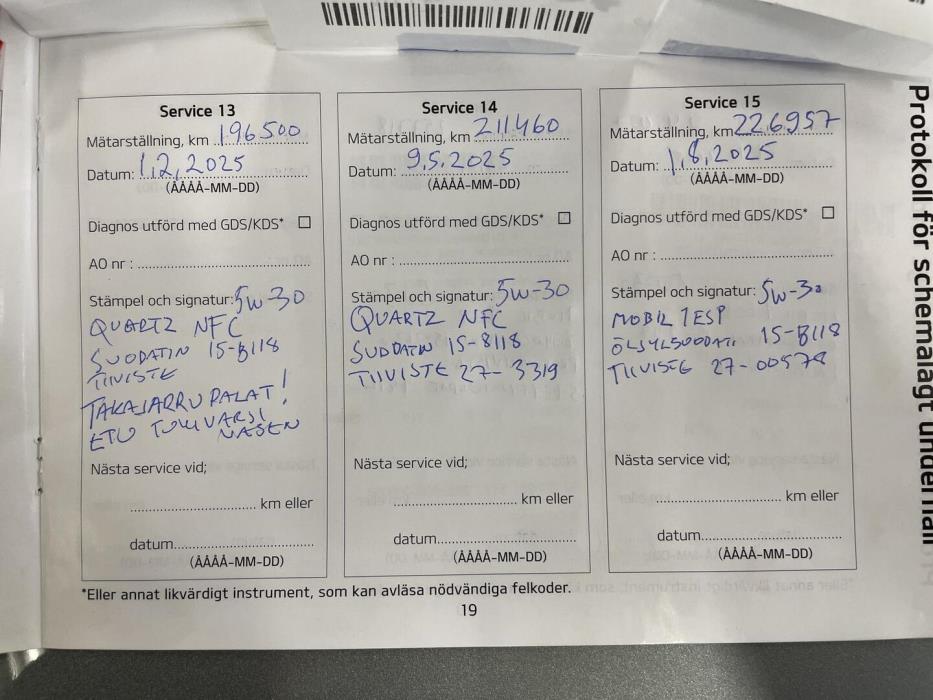 Service 13
Mätarställning, km 196500
Datum: 1.2.2025
(ÅÅÅÅ-MM-DD)
Diagnos utförd med GDS/KDS* ☐
AO nr :
Stämpel och signatur: 5W-30
QUARTZ NFC
SUODATIN 15-B118
TIIVISTE
TAKAJARRUPALAT!
ETU TUKIVARSI
VASEN
Nästa service vid;
km eller
datum
(ÅÅÅÅ-MM-DD)
Service 14
Mätarställning, km 211460
Datum: 9.5.2025
(ÅÅÅÅ-MM-DD)
Diagnos utförd med GDS/KDS* ☐
AO nr :
Stämpel och signatur: 5W-30
QUARTZ NFC
SUODATIN 15-8118
TIIVISTE 27-3319
Nästa service vid;
km eller
datum
(ÅÅÅÅ-MM-DD)
Service 15
Mätarställning, km 226957
Datum: 1.8.2025
(ÅÅÅÅ-MM-DD)
Diagnos utförd med GDS/KDS* ☐
AO nr :
Stämpel och signatur: 5W-30
MOBIL 1 ESP
ÖLJYLSUODATI 15-B118
TIIVISTE 27-00578
Nästa service vid;
km eller
datum
(ÅÅÅÅ-MM-DD)
*Eller annat likvärdigt instrument, som kan avläsa nödvändiga felkoder.
19
Protokoll för schemalagt underhåll